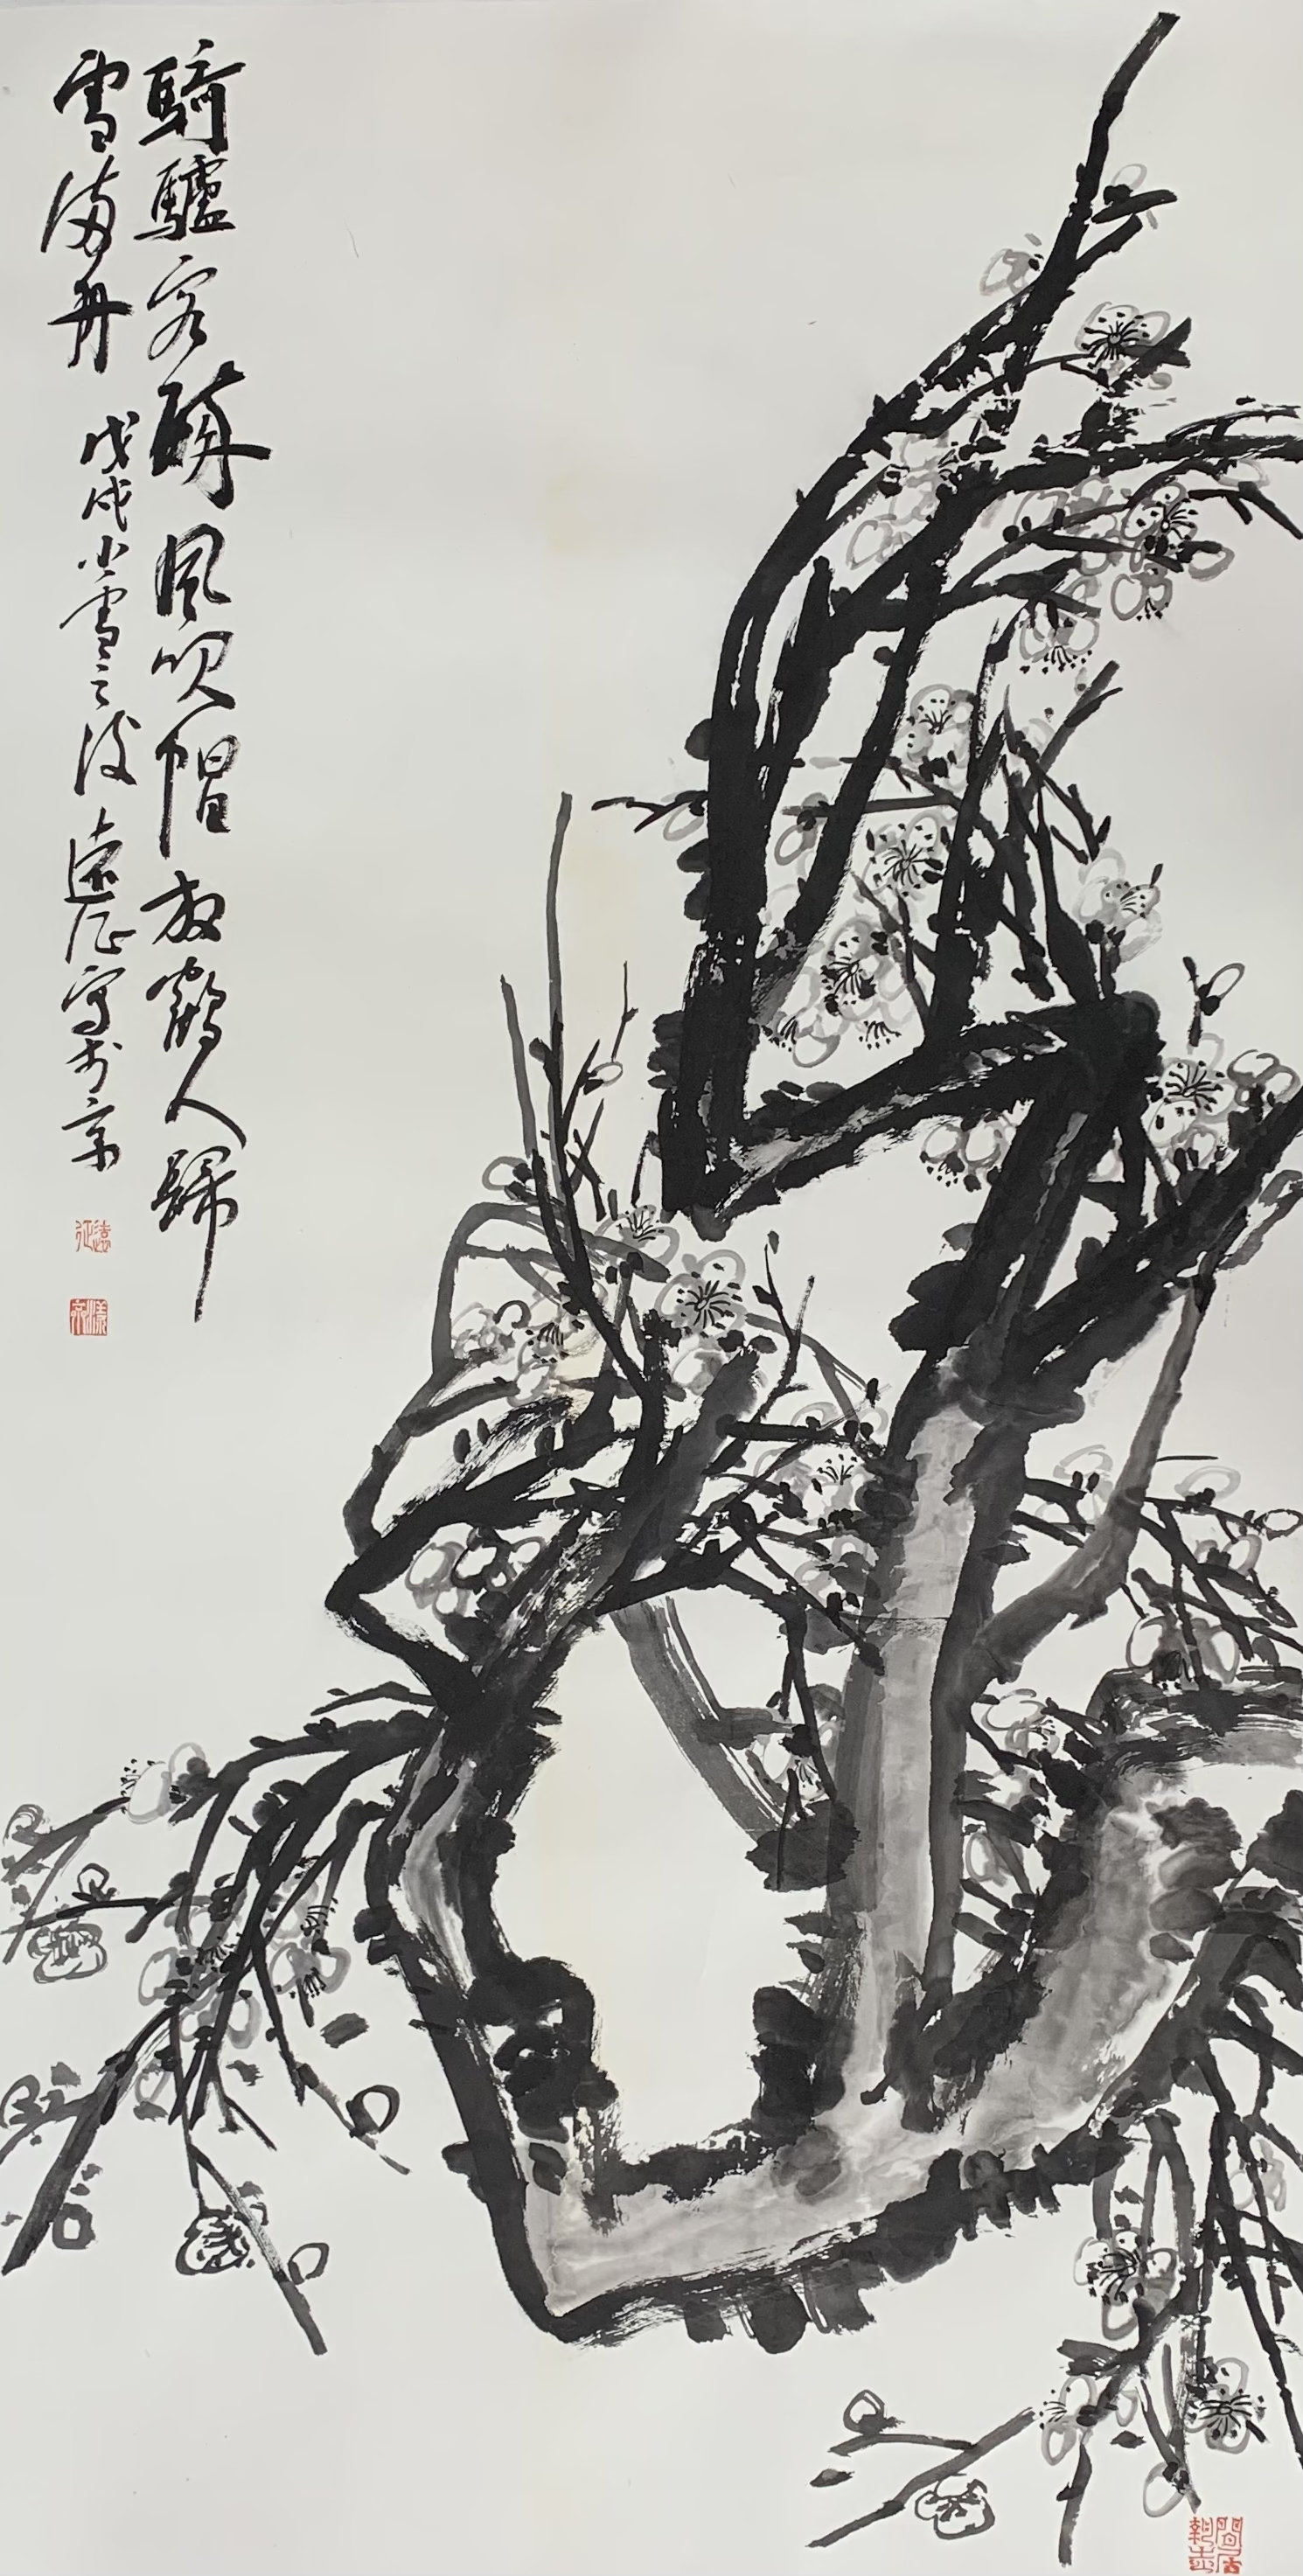 騎驢客醉風吹帽放鶴人歸
雪滿舟
戊戌小雪之後遠征寫於京
遠征